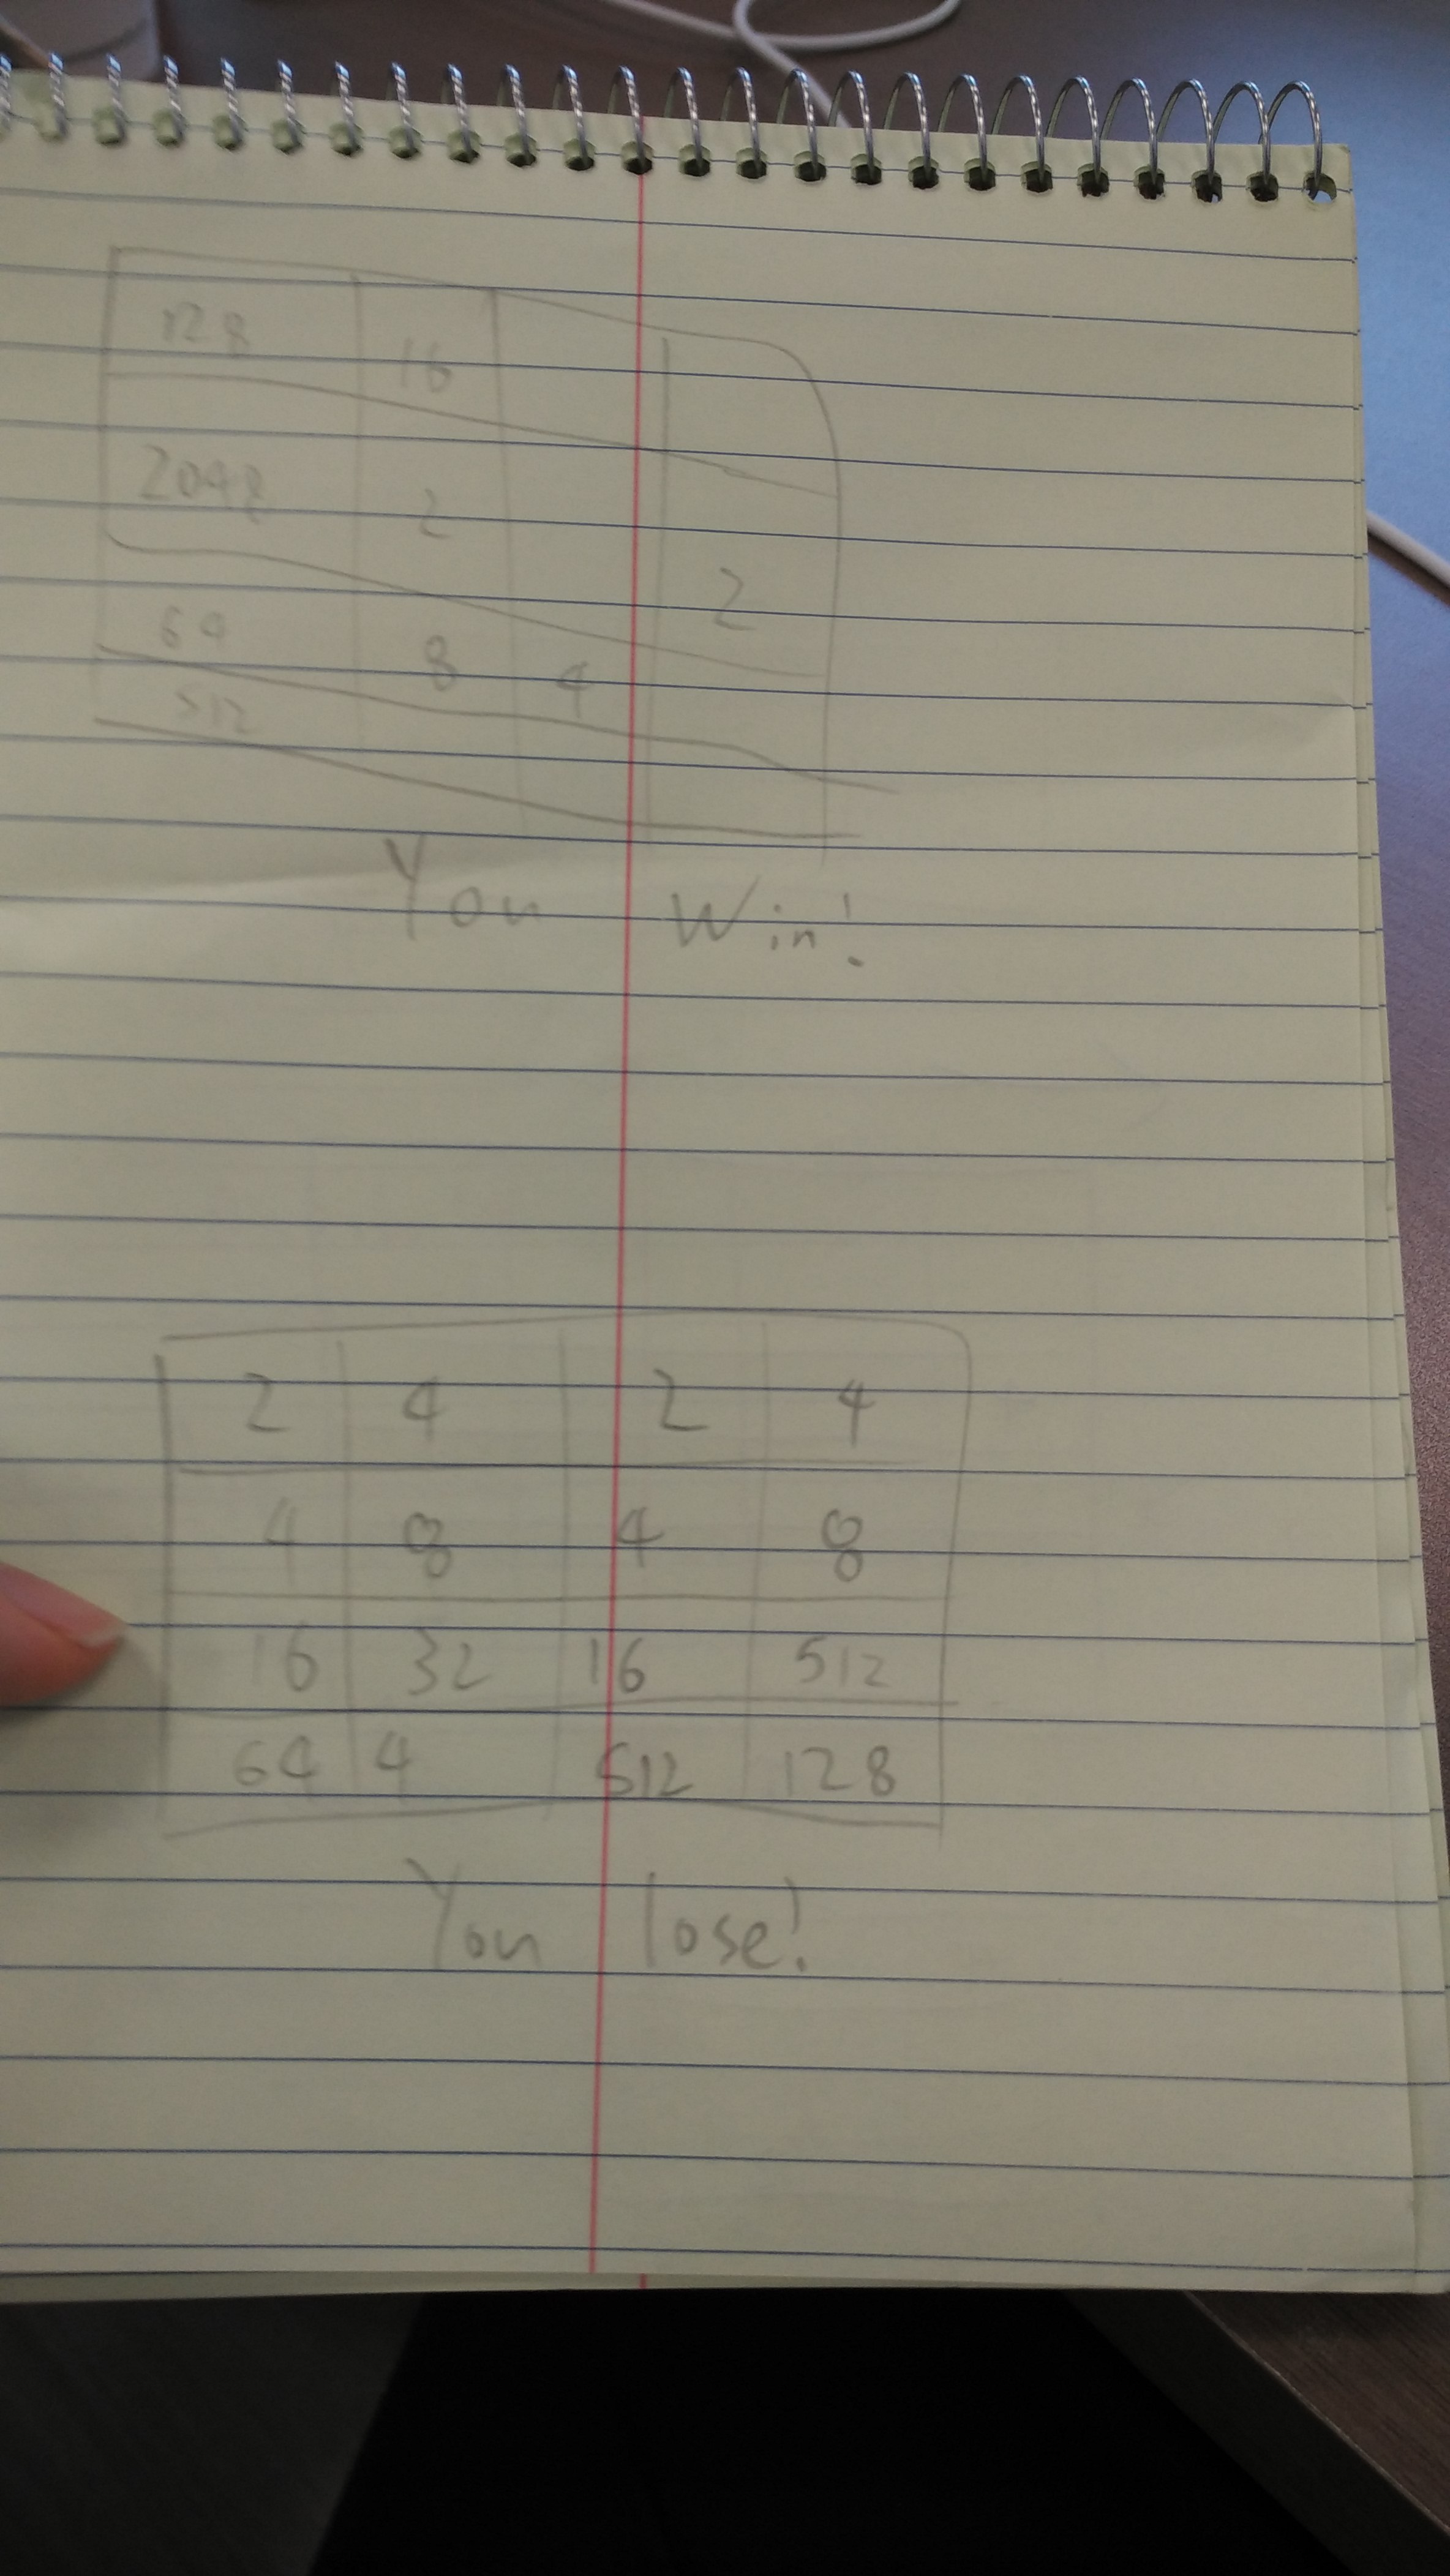 128 16
2048 2 2
64 8 4
512
You Win!
2 4 2 4
4 8 4 8
16 32 16 512
64 4 512 128
You lose!